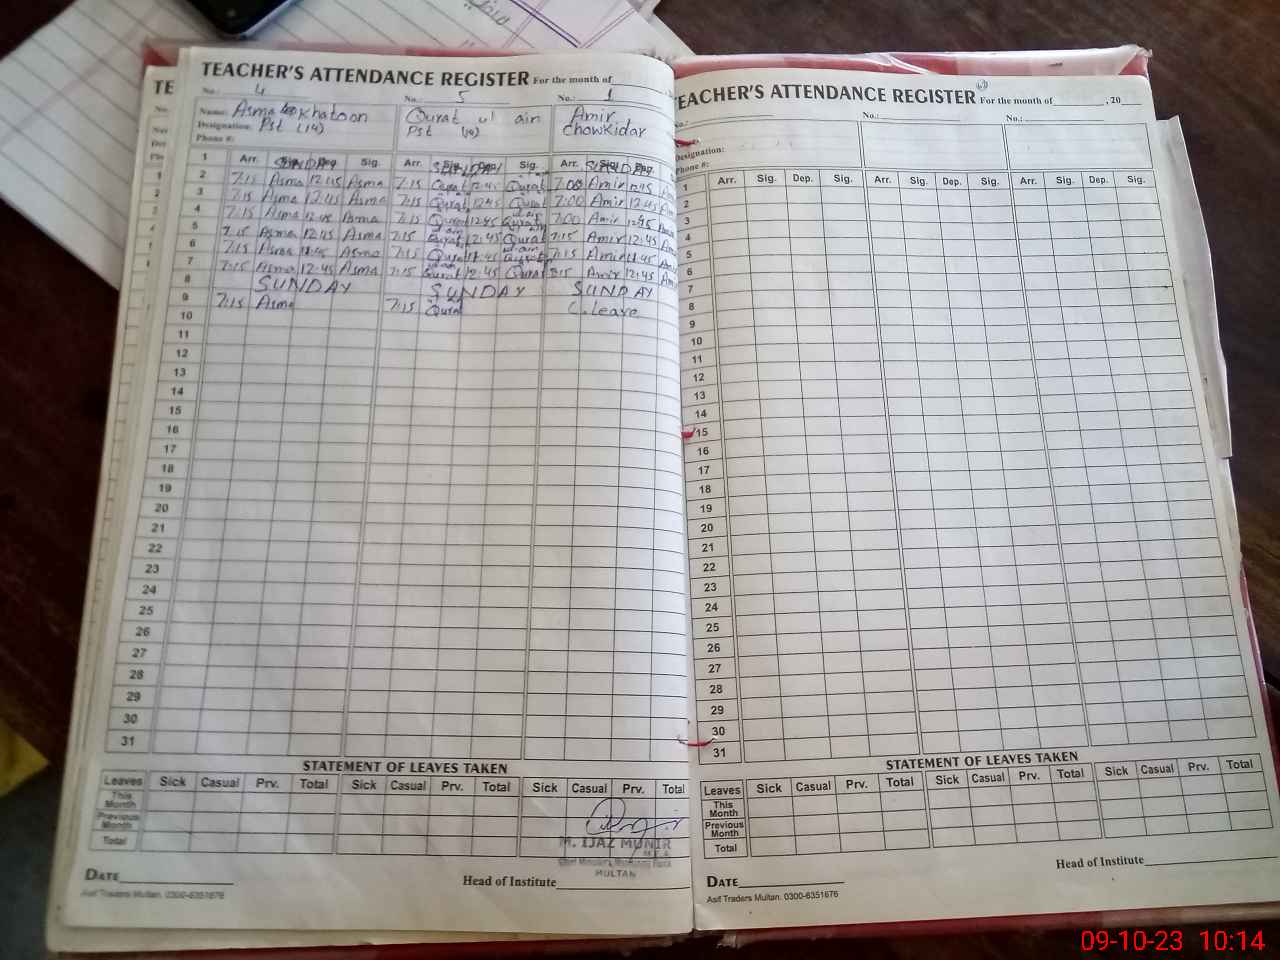 TEACHER'S ATTENDANCE REGISTER For the month of
No.: 4 No.: 5 No.: 1
Name: Asma Khatoon Qurat ul ain Amir
Designation: Pst (14) Pst (14) chowkidar
Phone #:
Arr. Sig. Dep. Sig. Arr. Sig. Dep. Sig. Arr. Sig. Dep.
1 SUNDAY SUNDAY SUNDAY
2 7:15 Asma 12:45 Asma 7:15 Qurat 12:45 Qurat 7:00 Amir 12:45
3 7:15 Asma 12:45 Asma 7:15 Qurat 12:45 Qurat 7:00 Amir 12:45
4 7:15 Asma 12:45 Asma 7:15 Qurat 12:45 Qurat 7:00 Amir 12:45
5 7:15 Asma 12:45 Asma 7:15 Qurat 12:45 Qurat 7:15 Amir 12:45
6 7:15 Asma 11:45 Asma 7:15 Qurat 11:45 Qurat 7:15 Amir 11:45
7 7:15 Asma 12:45 Asma 7:15 Qurat 12:45 Qurat 7:15 Amir 12:45
8 SUNDAY SUNDAY SUNDAY
9 7:15 Asma 7:15 Qurat C.leave
10
11
12
13
14
15
16
17
18
19
20
21
22
23
24
25
26
27
28
29
30
31
STATEMENT OF LEAVES TAKEN
Leaves Sick Casual Prv. Total Sick Casual Prv. Total Sick Casual Prv. Total
This Month
Previous Month
Total
M. IJAZ MUNIR
MULTAN
DATE Head of Institute
Asif Traders Multan. 0300-6351676
TEACHER'S ATTENDANCE REGISTER For the month of , 20
No.: No.: No.:
Designation:
Phone #:
Arr. Sig. Dep. Sig. Arr. Sig. Dep. Sig. Arr. Sig. Dep. Sig.
1
2
3
4
5
6
7
8
9
10
11
12
13
14
15
16
17
18
19
20
21
22
23
24
25
26
27
28
29
30
31
STATEMENT OF LEAVES TAKEN
Leaves Sick Casual Prv. Total Sick Casual Prv. Total Sick Casual Prv. Total
This Month
Previous Month
Total
Head of Institute
DATE
Asif Traders Multan. 0300-6351676
09-10-23 10:14